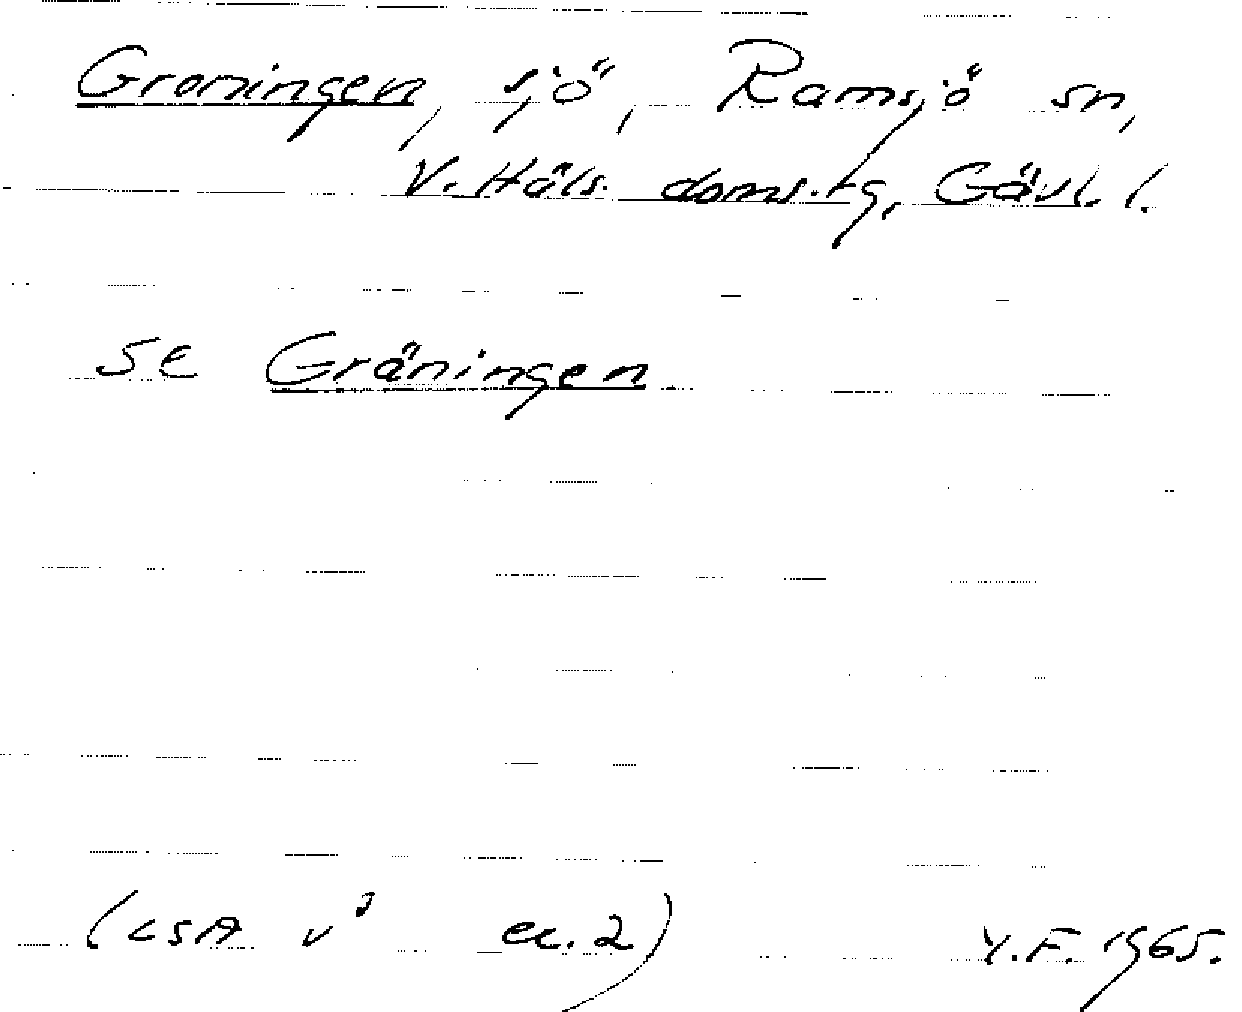 Groningen, sjö, Ramsjö sn,
V. Häls. doms.tg, Gävl. l.
se Gräningen
(LSA v³ ex. 2) Y.F. 1965.